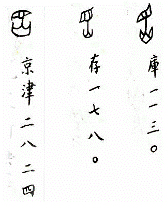 庫一一三〇
存一七八〇
京津二八二四